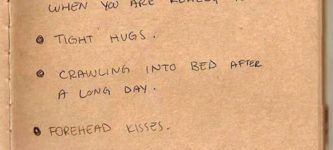 WHEN YOU ARE REALLY
TIGHT HUGS.
CRAWLING INTO BED AFTER
A LONG DAY.
FOREHEAD KISSES.